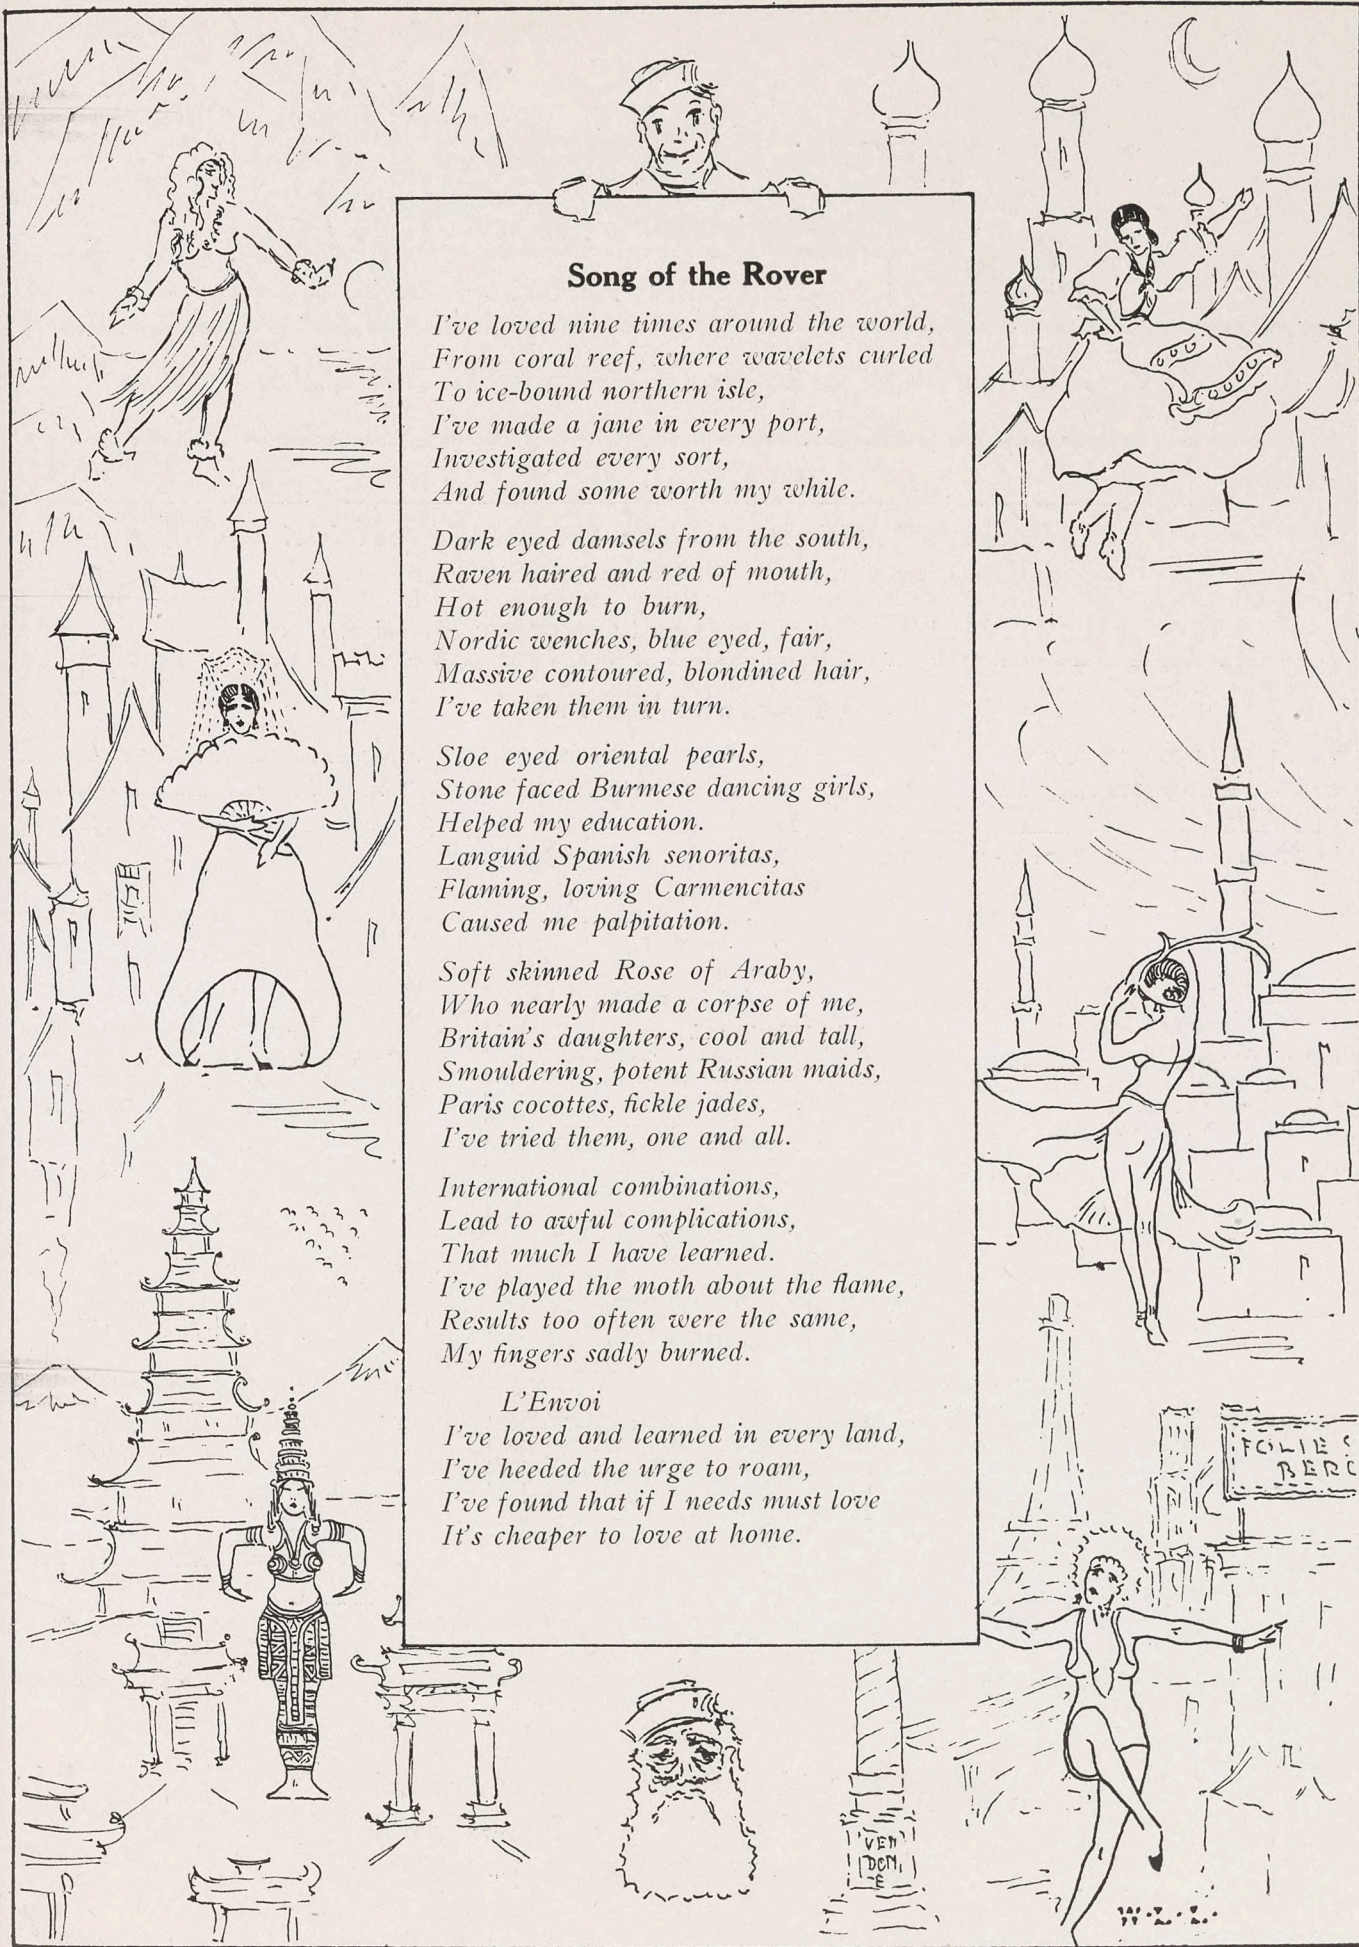 Song of the Rover
I've loved nine times around the world,
From coral reef, where wavelets curled
To ice-bound northern isle,
I've made a jane in every port,
Investigated every sort,
And found some worth my while.
Dark eyed damsels from the south,
Raven haired and red of mouth,
Hot enough to burn,
Nordic wenches, blue eyed, fair,
Massive contoured, blondined hair,
I've taken them in turn.
Sloe eyed oriental pearls,
Stone faced Burmese dancing girls,
Helped my education.
Languid Spanish senoritas,
Flaming, loving Carmencitas
Caused me palpitation.
Soft skinned Rose of Araby,
Who nearly made a corpse of me,
Britain's daughters, cool and tall,
Smouldering, potent Russian maids,
Paris cocottes, fickle jades,
I've tried them, one and all.
International combinations,
Lead to awful complications,
That much I have learned.
I've played the moth about the flame,
Results too often were the same,
My fingers sadly burned.
L'Envoi
I've loved and learned in every land,
I've heeded the urge to roam,
I've found that if I needs must love
It's cheaper to love at home.
FOLIES
BERG
VEN
DOM,
E